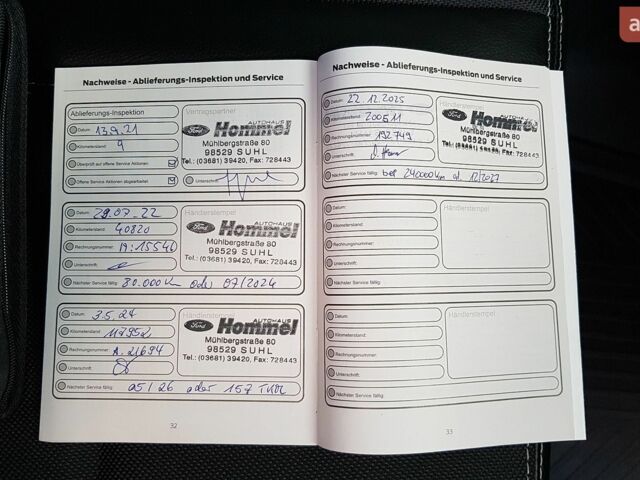 Nachweise - Ablieferungs-Inspektion und Service
Ablieferungs-Inspektion
Datum: 13.9.21
Kilometerstand: 9
Überprüft auf offene Service Aktionen
Offene Service Aktionen abgearbeitet
Vertragspartner
Ford AUTOHAUS Hommel
Mühlbergstraße 80
98529 SUHL
Tel.: (03681) 39420, Fax: 728443
Unterschrift:
Datum: 29.07.22
Kilometerstand: 40820
Rechnungsnummer: 19:15546
Unterschrift:
Händlerstempel
Ford AUTOHAUS Hommel
Mühlbergstraße 80
98529 SUHL
Tel.: (03681) 39420, Fax: 728443
Nächster Service fällig: 80.000 Km oder 07/2024
Datum: 3.5.24
Kilometerstand: 117952
Rechnungsnummer: A.21694
Unterschrift:
Händlerstempel
Ford AUTOHAUS Hommel
Mühlbergstraße 80
98529 SUHL
Tel.: (03681) 39420, Fax: 728443
Nächster Service fällig: 05/26 oder 157 TKM
32
Nachweise - Ablieferungs-Inspektion und Service
Datum: 22.12.2025
Kilometerstand: 200511
Rechnungsnummer: 192749
Unterschrift:
Händlerstempel
Ford AUTOHAUS Hommel
Mühlbergstraße 80
98529 SUHL
Tel.: (03681) 39420, Fax: 728443
Nächster Service fällig: bei 240000 Km od. 12/2027
Datum:
Kilometerstand:
Rechnungsnummer:
Unterschrift:
Händlerstempel
Nächster Service fällig:
Datum:
Kilometerstand:
Rechnungsnummer:
Unterschrift:
Händlerstempel
Nächster Service fällig:
33
a